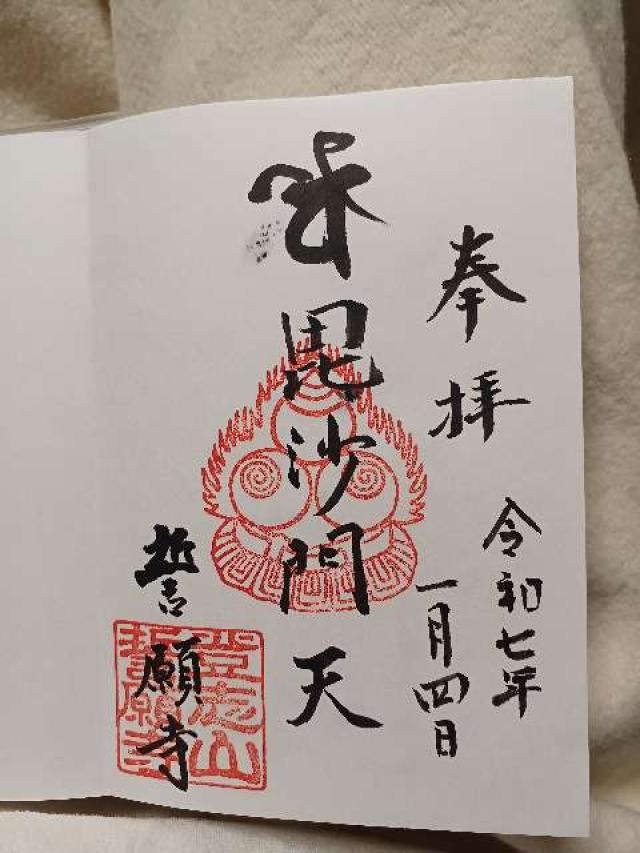 奉拝
令和七年
一月四日
毘沙門天
誓願寺